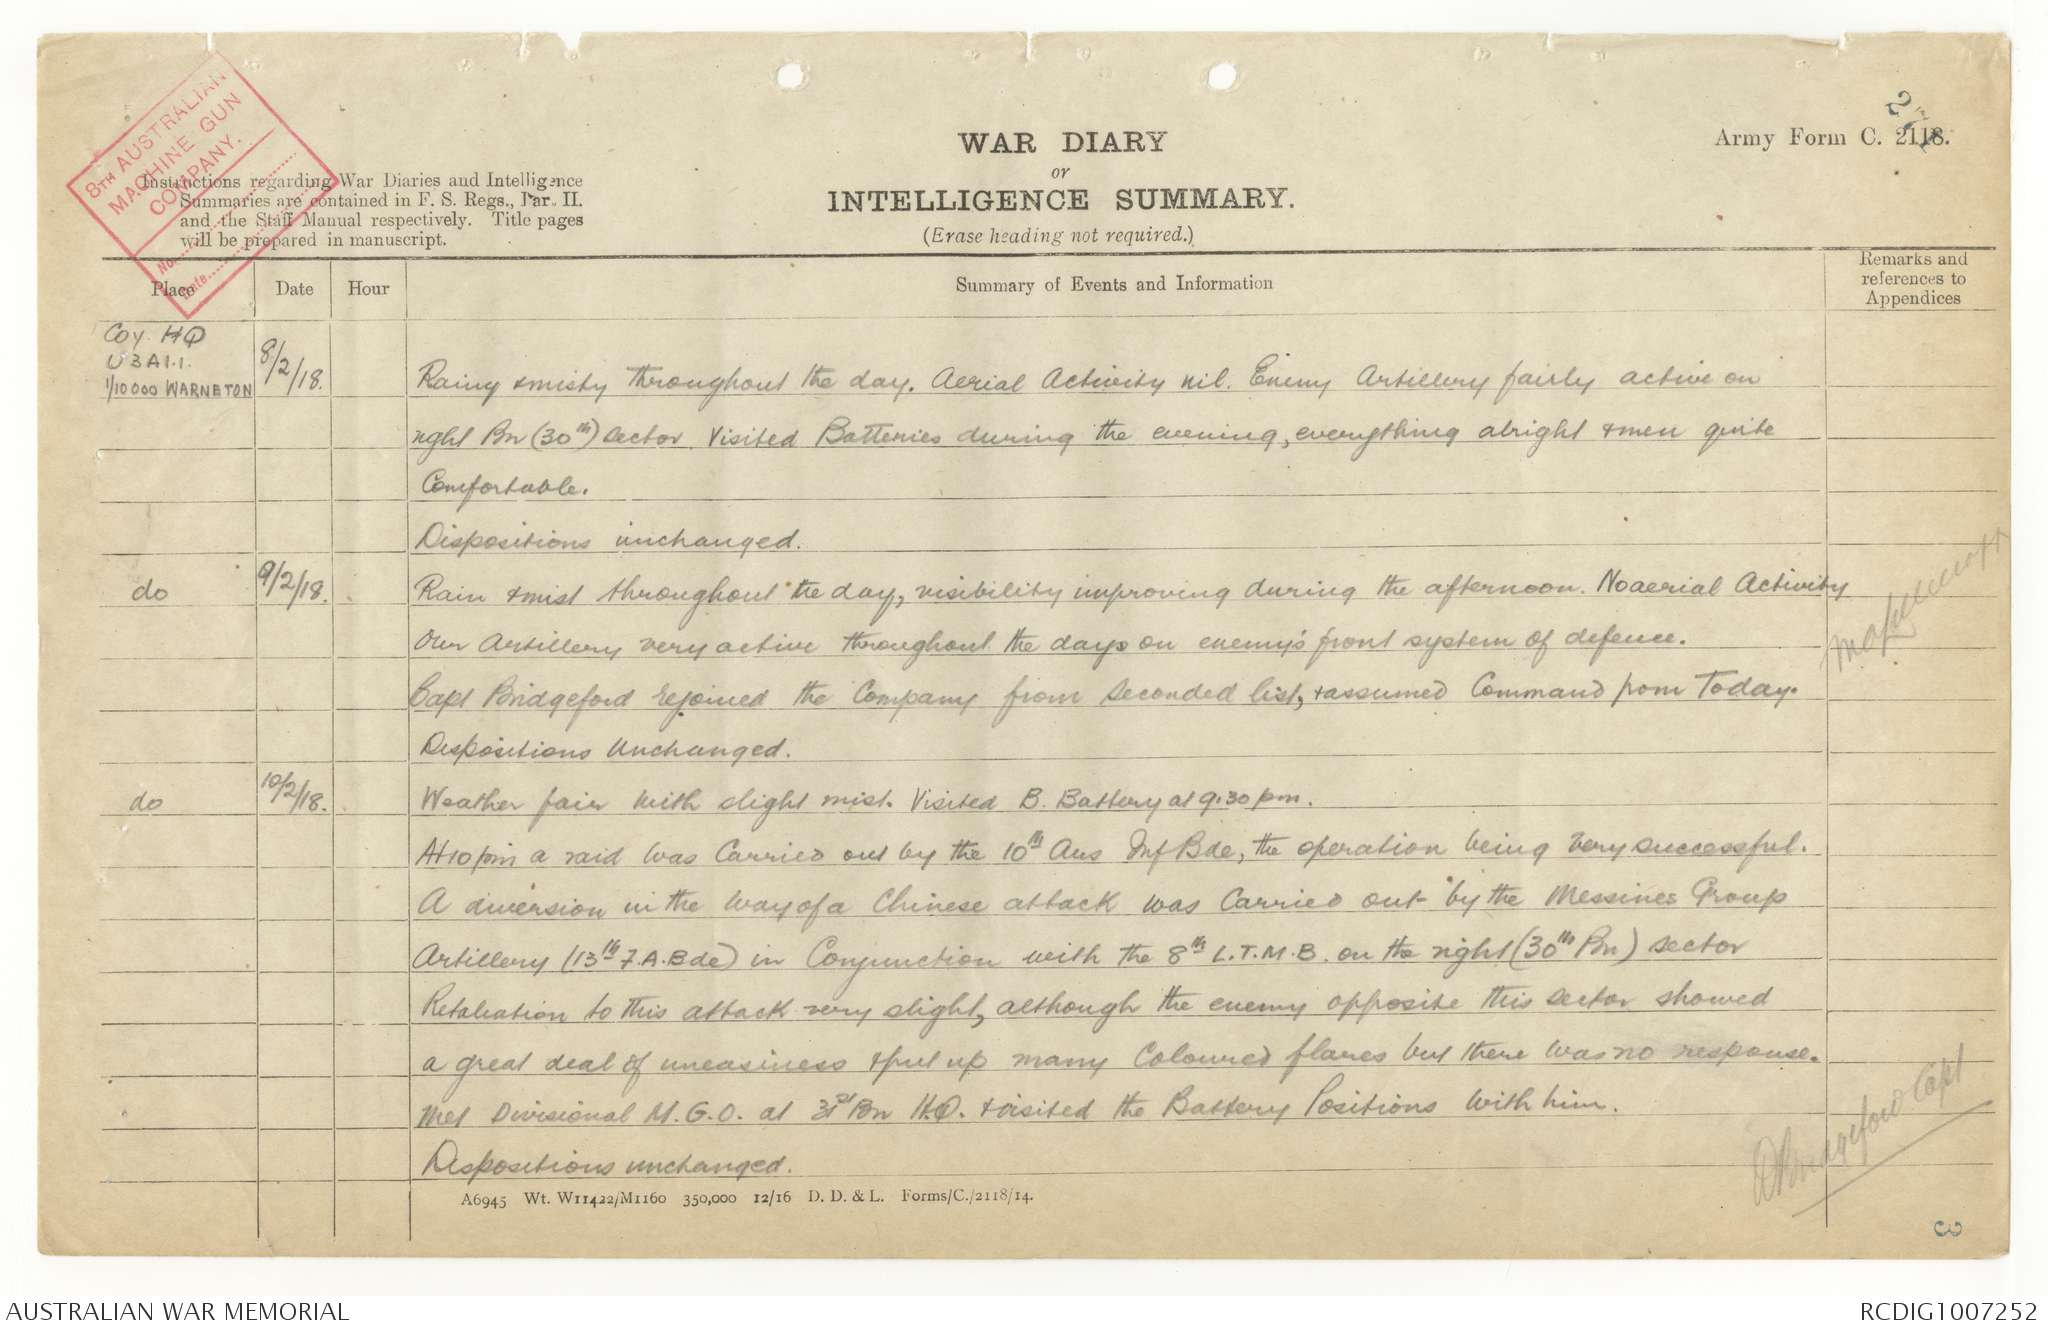 8TH AUSTRALIAN
MACHINE GUN
COMPANY.
No..............
Date..............
Instructions regarding War Diaries and Intelligence
Summaries are contained in F. S. Regs., Part II.
and the Staff Manual respectively. Title pages
will be prepared in manuscript.
WAR DIARY
or
INTELLIGENCE SUMMARY.
(Erase heading not required.)
Army Form C. 2118.
Place Date Hour Summary of Events and Information Remarks and references to Appendices
Coy. HQ
U3A1.1.
1/10000 WARNETON
8/2/18. Rainy & misty throughout the day. Aerial Activity nil. Enemy Artillery fairly active on
right Bn (30th) sector. Visited Batteries during the evening, everything alright & men quite
Comfortable.
Dispositions unchanged.
do 9/2/18. Rain & mist throughout the day, visibility improving during the afternoon. No aerial Activity
Our Artillery very active throughout the days on enemy's front system of defence.
Capt Bridgeford rejoined the Company from Seconded list, & assumed Command from Today.
Dispositions Unchanged.
do 10/2/18. Weather fair with slight mist. Visited B. Battery at 9.30 pm.
At 10 pm a raid was Carried out by the 10th Aus Inf Bde, the operation being very successful.
A diversion in the way of a Chinese attack was Carried out by the Messines Group
Artillery (13th F.A.Bde) in Conjunction with the 8th L.T.M.B. on the right (30th Bn) sector
Retaliation to this attack very slight, although the enemy opposite this sector showed
a great deal of uneasiness & put up many Coloured flares but there was no response.
Met Divisional M.G.O. at 31st Bn H.Q. & visited the Battery Positions with him.
Dispositions unchanged.
Bridgeford Capt
A6945 Wt. W11422/M1160 350,000 12/16 D. D. & L. Forms/C./2118/14.
3
AUSTRALIAN WAR MEMORIAL
RCDIG1007252